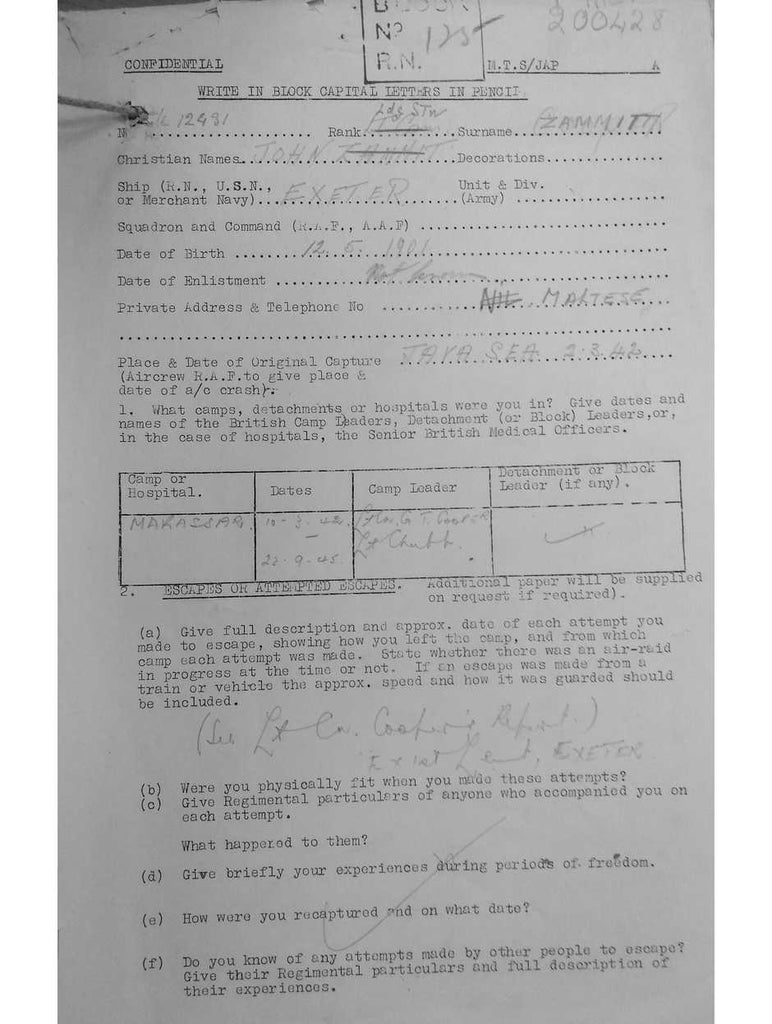 Nº 125
R.N.
200428
CONFIDENTIAL M.T.S/JAP A
WRITE IN BLOCK CAPITAL LETTERS IN PENCIL
Nº 12481 .................... Rank............Surname. ZAMMITT
Christian Names. JOHN ............Decorations...............
Ship (R.N., U.S.N., Unit & Div.
or Merchant Navy).... EXETER ............(Army) ...................
Squadron and Command (R.A.F., A.A.F) ................................
Date of Birth ......... 12. 5. 1901 ................................
Date of Enlistment ............ Not known ................................
Private Address & Telephone No ............ MALTESE....
...........................................................................
Place & Date of Original Capture ... JAVA SEA. 2.3.42....
(Aircrew R.A.F.to give place &
date of a/c crash).
1. What camps, detachments or hospitals were you in? Give dates and
names of the British Camp Leaders, Detachment (or Block) Leaders,or,
in the case of hospitals, the Senior British Medical Officers.
Camp or Hospital. Dates Camp Leader Detachment or Block Leader (if any).
MAKASSAR. 10-3-42. Lt Cdr. G T. COOPER
— Lt Chubb.
22-9-45.
2. ESCAPES OR ATTEMPTED ESCAPES. Additional paper will be supplied
on request if required).
(a) Give full description and approx. date of each attempt you
made to escape, showing how you left the camp, and from which
camp each attempt was made. State whether there was an air-raid
in progress at the time or not. If an escape was made from a
train or vehicle the approx. speed and how it was guarded should
be included.
(See Lt Cdr. Cooper's Report.)
Ex 1st Lieut, EXETER
(b) Were you physically fit when you made these attempts?
(c) Give Regimental particulars of anyone who accompanied you on
each attempt.
What happened to them?
(d) Give briefly your experiences during periods of freedom.
(e) How were you recaptured and on what date?
(f) Do you know of any attempts made by other people to escape?
Give their Regimental particulars and full description of
their experiences.